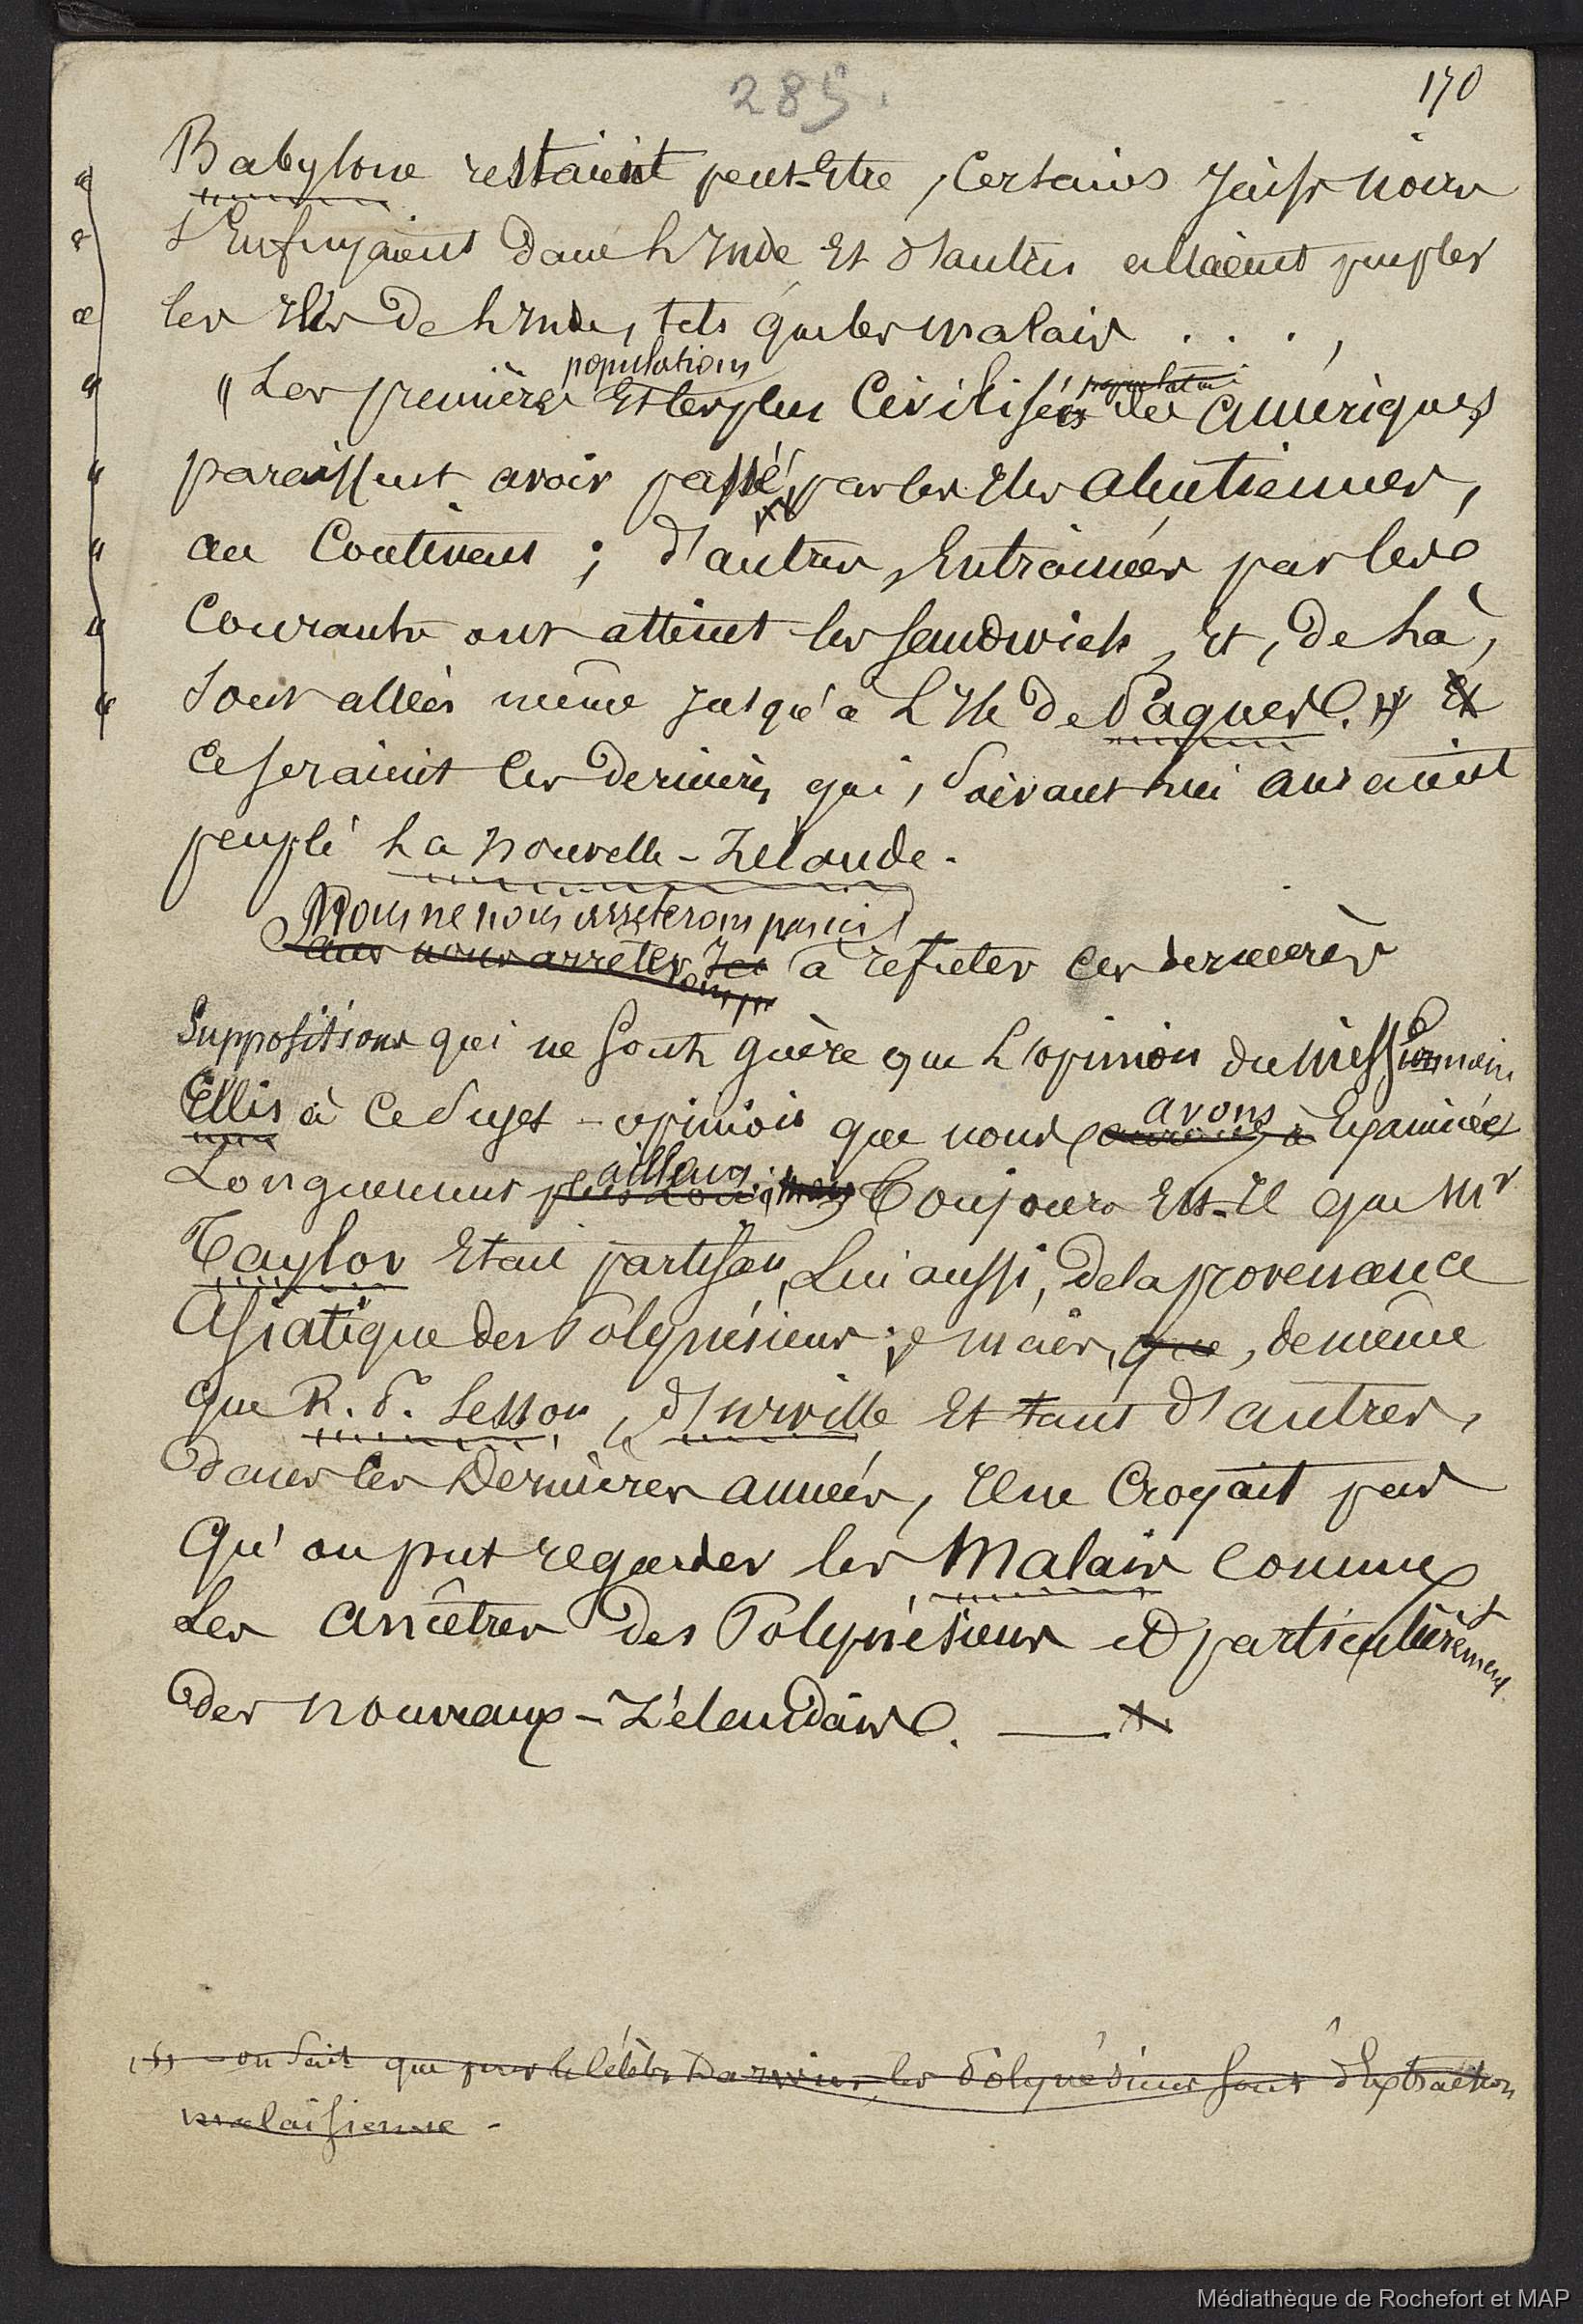 285.
170
Babylone restaient peut-Etre, Certains Juifs noirs
s'Enfuyaient dans L'Inde Et d'autres allaient peupler
les Iles de L'Inde, tels que les malais . . . ,
populations
" Les premières Et les plus Civilisées populations des amériques
paraissent avoir passé, par les Iles aleutiennes,
au Continent ; d'autres, Entrainées par les
Courants ont atteint les Sandwich, Et, de Là,
Sont allées même jusqu'à L'Ile de Pâques. Et
Ce seraient les dernières qui, Suivant lui auraient
peuplé La nouvelle-Zélande.
Nous ne nous arrêterons pas ici
Sans nous arrêter Ici à réfuter ces dernières
Suppositions qui ne Sont guère que L'opinion du missionnaire
Ellis à Ce Sujet - opinion que nous avons Examinée
Longuement plus Loin ailleurs; mais Toujours Est-Il que Mr
Taylor Etait partisan, Lui aussi, de la provenance
Asiatique des Polynésiens ; mais, que, de même
que R. P. Lesson, d'urville Et tant d'autres,
dans les Dernières années, Il ne Croyait pas
Qu'on put regarder les Malais comme
Les ancêtres des Polynésiens et particulièrement
des nouveaux-Zélandais. —
(1) - on Sait que pour le célèbre Darwin, les Polynésiens sont d'Extraction
malaisienne -
Médiathèque de Rochefort et MAP